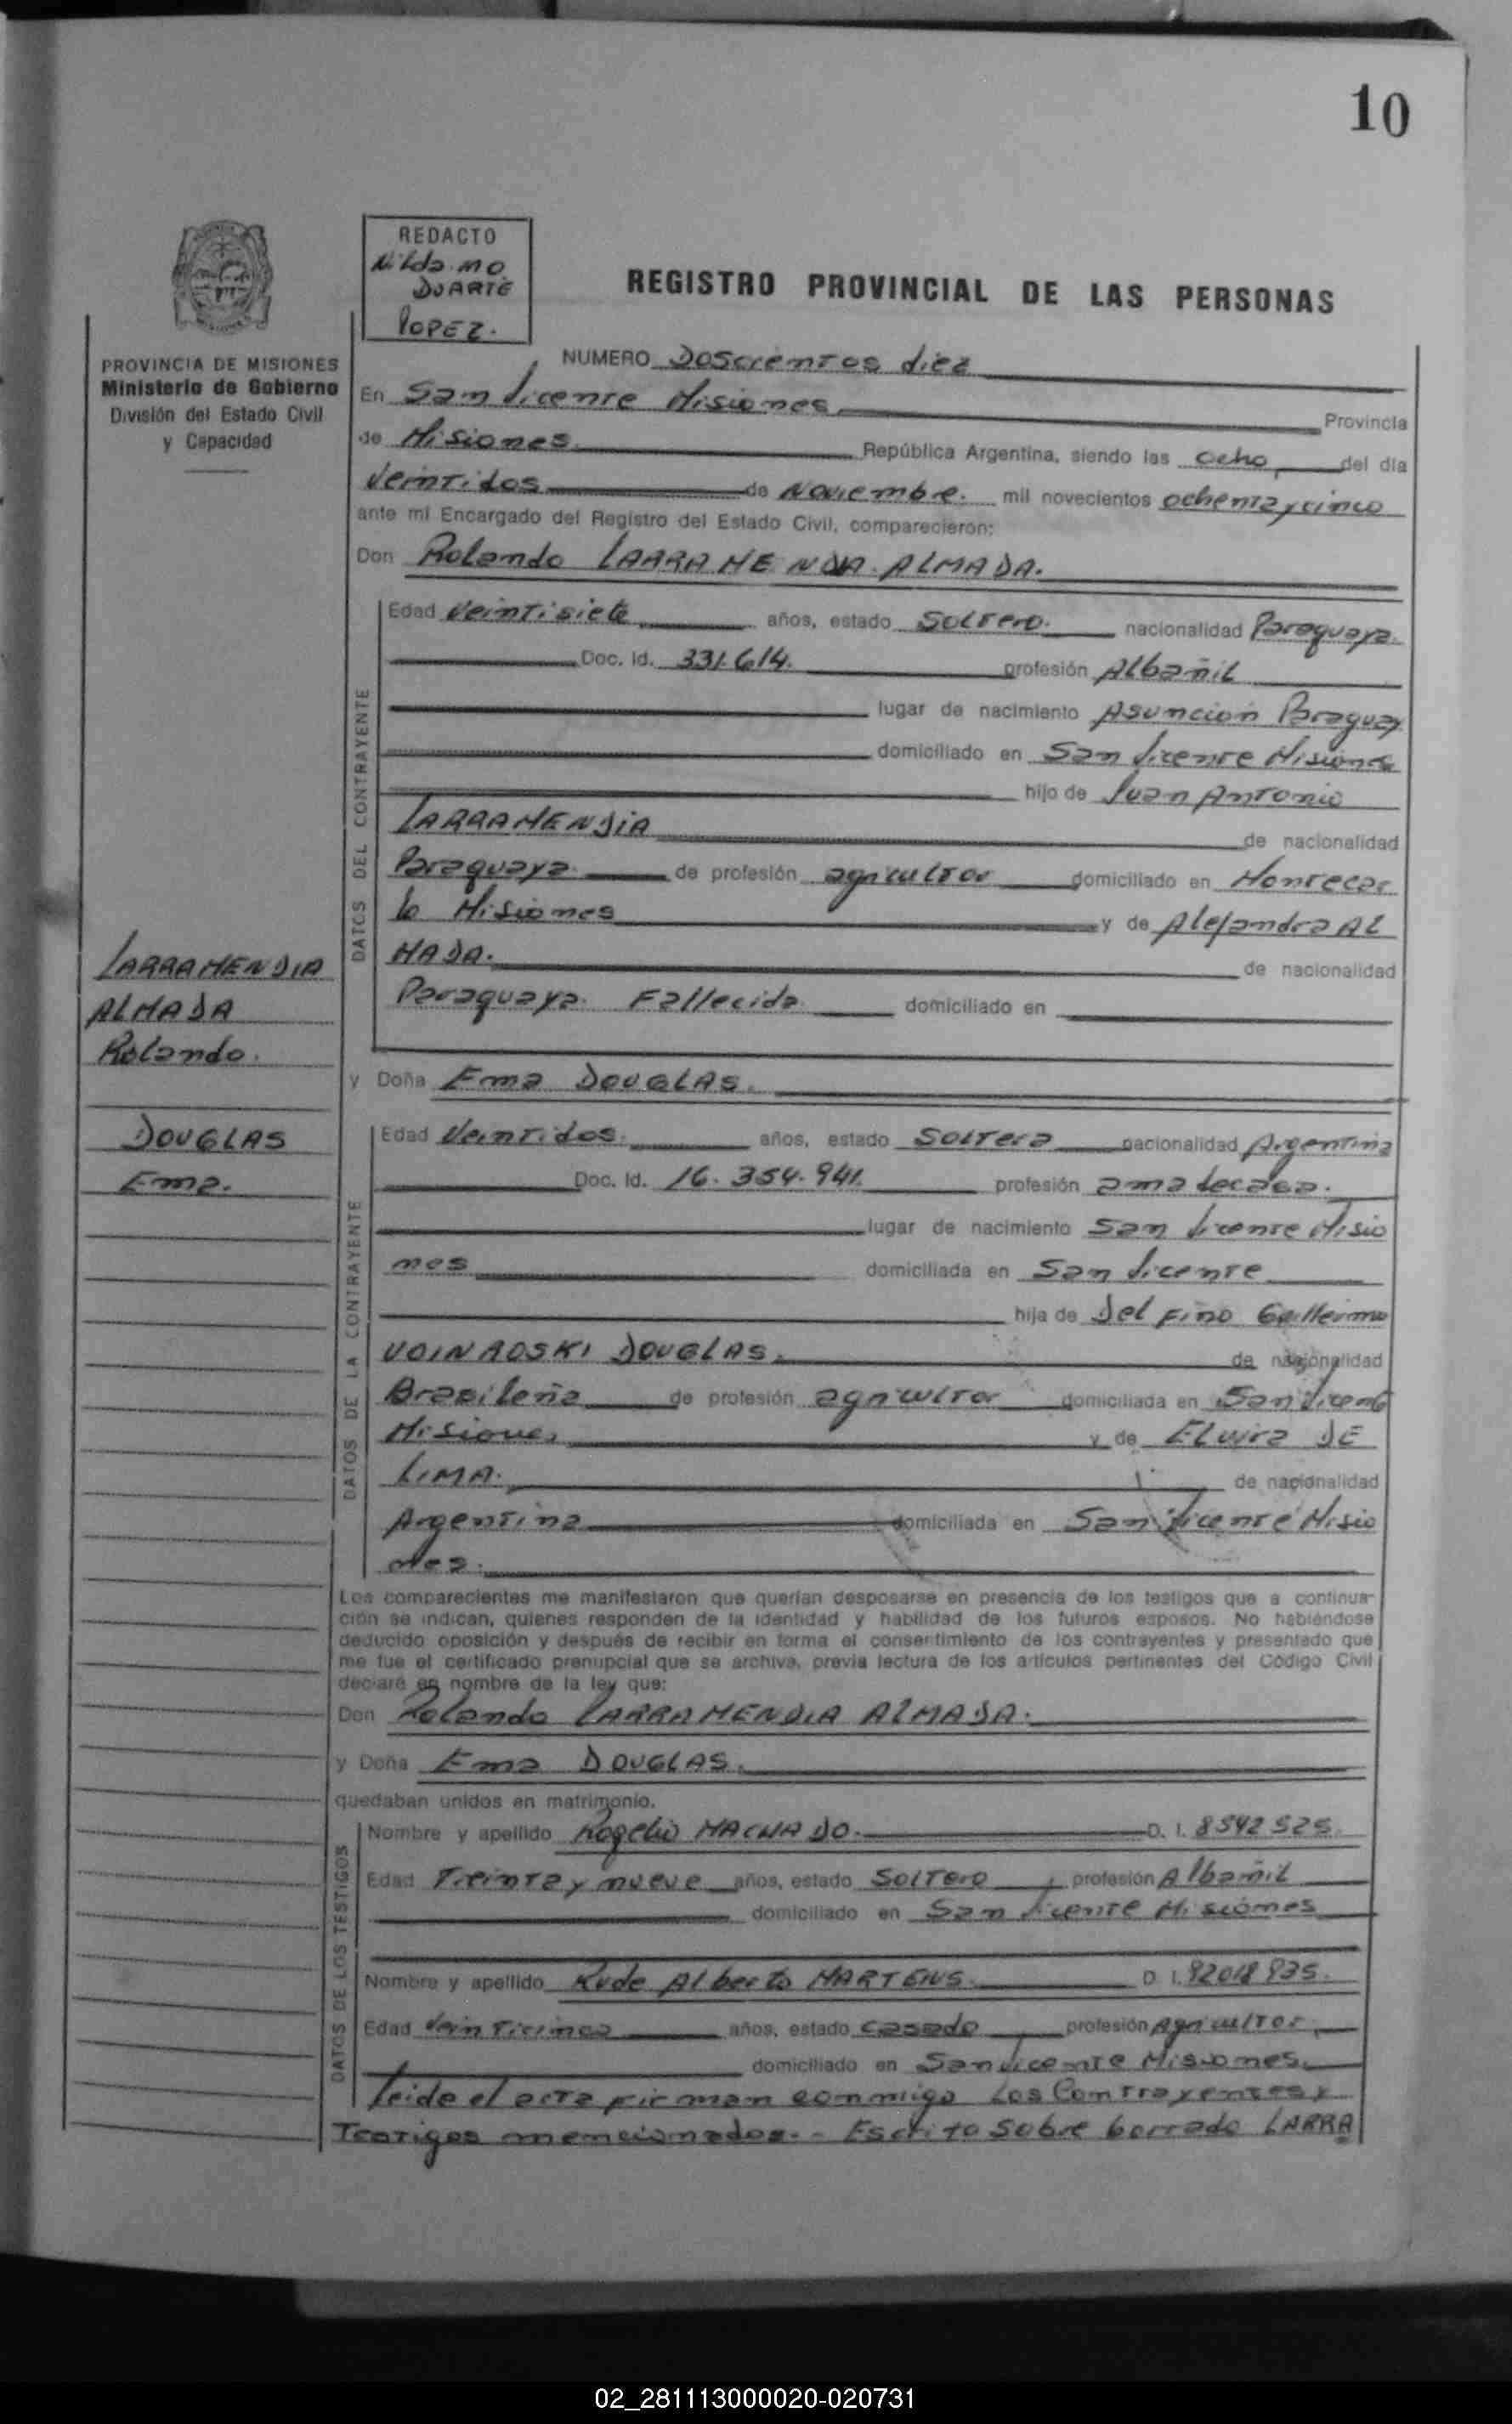 10
REDACTO
Nilda. mo
DUARTE
LOPEZ.
REGISTRO PROVINCIAL DE LAS PERSONAS
PROVINCIA DE MISIONES
Ministerio de Gobierno
División del Estado Civil
y Capacidad
NUMERO Doscientos diez
En San Vicente Misiones Provincia
de Misiones República Argentina, siendo las ocho, del día
Veintidos de Noviembre. mil novecientos ochenta y cinco
ante mi Encargado del Registro del Estado Civil, comparecieron:
Don Rolando LARRAMENDIA ALMADA.
DATOS DEL CONTRAYENTE
Edad Veintisiete años, estado Soltero. nacionalidad Paraguaya.
Doc. Id. 331.614. profesión Albañil
lugar de nacimiento Asuncion Paraguay
domiciliado en San Vicente Misiones
hijo de Juan Antonio
LARRAMENDIA de nacionalidad
Paraguaya de profesión agricultor domiciliado en Montecar
lo Misiones y de Alejandra AL
MADA. de nacionalidad
Paraguaya. Fallecida domiciliado en
LARRAMENDIA
ALMADA
Rolando.
y Doña Ema DOUGLAS.
DOUGLAS
Ema.
DATOS DE LA CONTRAYENTE
Edad Veintidos. años, estado Soltera nacionalidad Argentina
Doc. Id. 16.354.941. profesión ama de casa.
lugar de nacimiento San Vicente Misio
nes domiciliada en San Vicente
hija de Delfino Guillermo
VOINROSKI DOUGLAS. de nacionalidad
Brasileña de profesión agricultor domiciliada en San Vicente
Misiones y de Elvira DE
LIMA. de nacionalidad
Argentina domiciliada en San Vicente Misio
nes.
Los comparecientes me manifestaron que querían desposarse en presencia de los testigos que a continua-
ción se indican, quienes responden de la identidad y habilidad de los futuros esposos. No habiéndose
deducido oposición y después de recibir en forma el consentimiento de los contrayentes y presentado que
me fue el certificado prenupcial que se archiva, previa lectura de los artículos pertinentes del Código Civil
declaré en nombre de la ley que:
Don Rolando LARRAMENDIA ALMADA.
y Doña Ema DOUGLAS.
quedaban unidos en matrimonio.
DATOS DE LOS TESTIGOS
Nombre y apellido Rogelio MACHADO. D. I. 8542525.
Edad Treinta y nueve años, estado Soltero profesión Albañil
domiciliado en San Vicente Misiones
Nombre y apellido Rude Alberto MARTENS. D. I. 92018935.
Edad Veinticinco años, estado Casado profesión Agricultor
domiciliado en San Vicente Misiones.
Leida el acta firman conmigo los Contrayentes y
Testigos mencionados.- Escrito sobre borrado LARRA
02_281113000020-020731